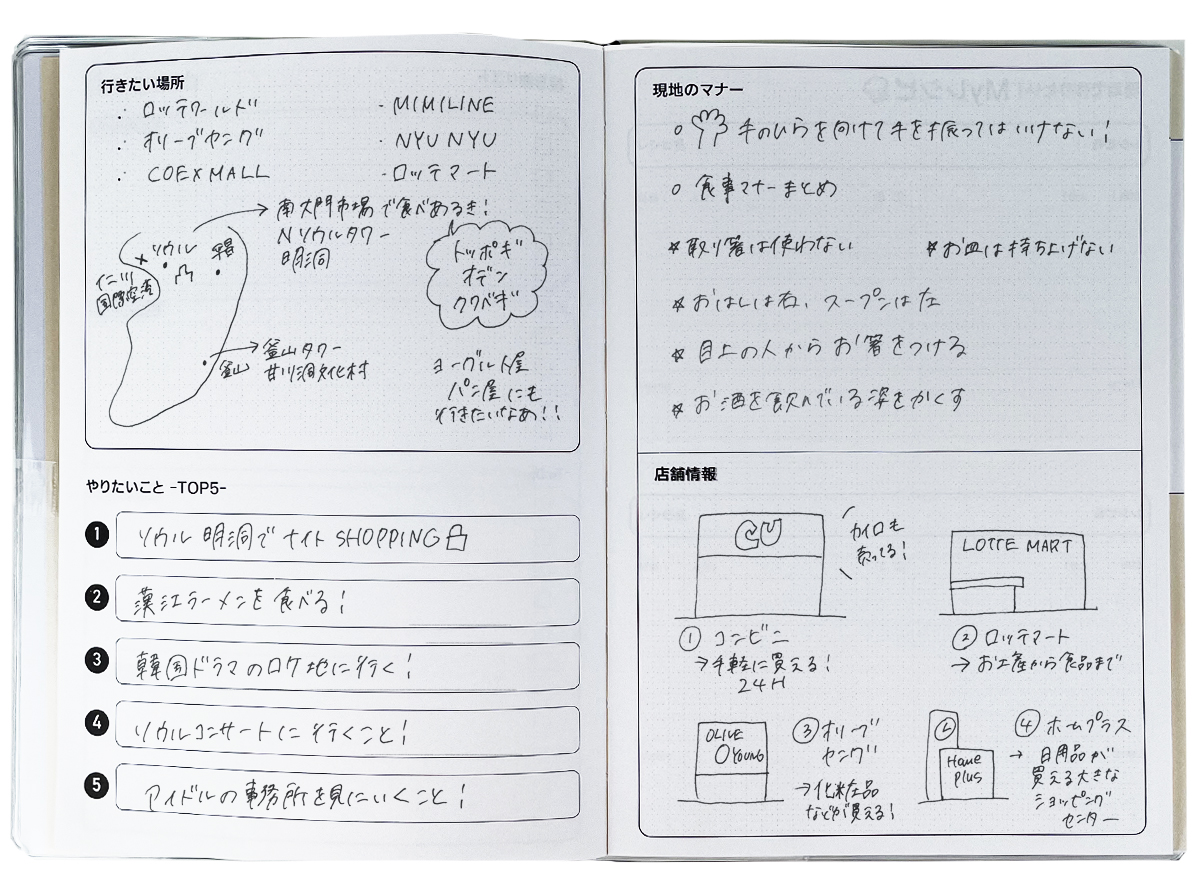 行きたい場所
・ロッテワールド
・オリーブヤング
・COEXMALL
・MIMILINE
・NYUNYU
・ロッテマート
→南大門市場で食べあるき!
Nソウルタワー
明洞
ソウル
仁川
国際空港
トッポギ
オデン
クワベギ
釜山
→釜山タワー
甘川洞文化村
ヨーグルト屋
パン屋にも
行きたいなぁ!!
やりたいこと -TOP5-
1 ソウル 明洞で ナイト SHOPPING
2 漢江ラーメンを食べる!
3 韓国ドラマのロケ地に行く!
4 ソウルコンサートに行くこと!
5 アイドルの事務所を見にいくこと!
現地のマナー
○ 手のひらを向けて手を振ってはいけない!
○ 食事マナーまとめ
☆取り箸は使わない
☆お皿は持ち上げない
☆おはしは右、スープンは左
☆目上の人からお箸をつける
☆お酒を飲んでいる姿をかくす
店舗情報
CU
カイロも
売ってる!
① コンビニ
→手軽に買える!
24H
LOTTE MART
② ロッテマート
→お土産から食品まで
OLIVE
YOUNG
③オリーブ
ヤング
→化粧品
などが買える!
Home
plus
④ホームプラス
→日用品が
買える大きな
ショッピング
センター